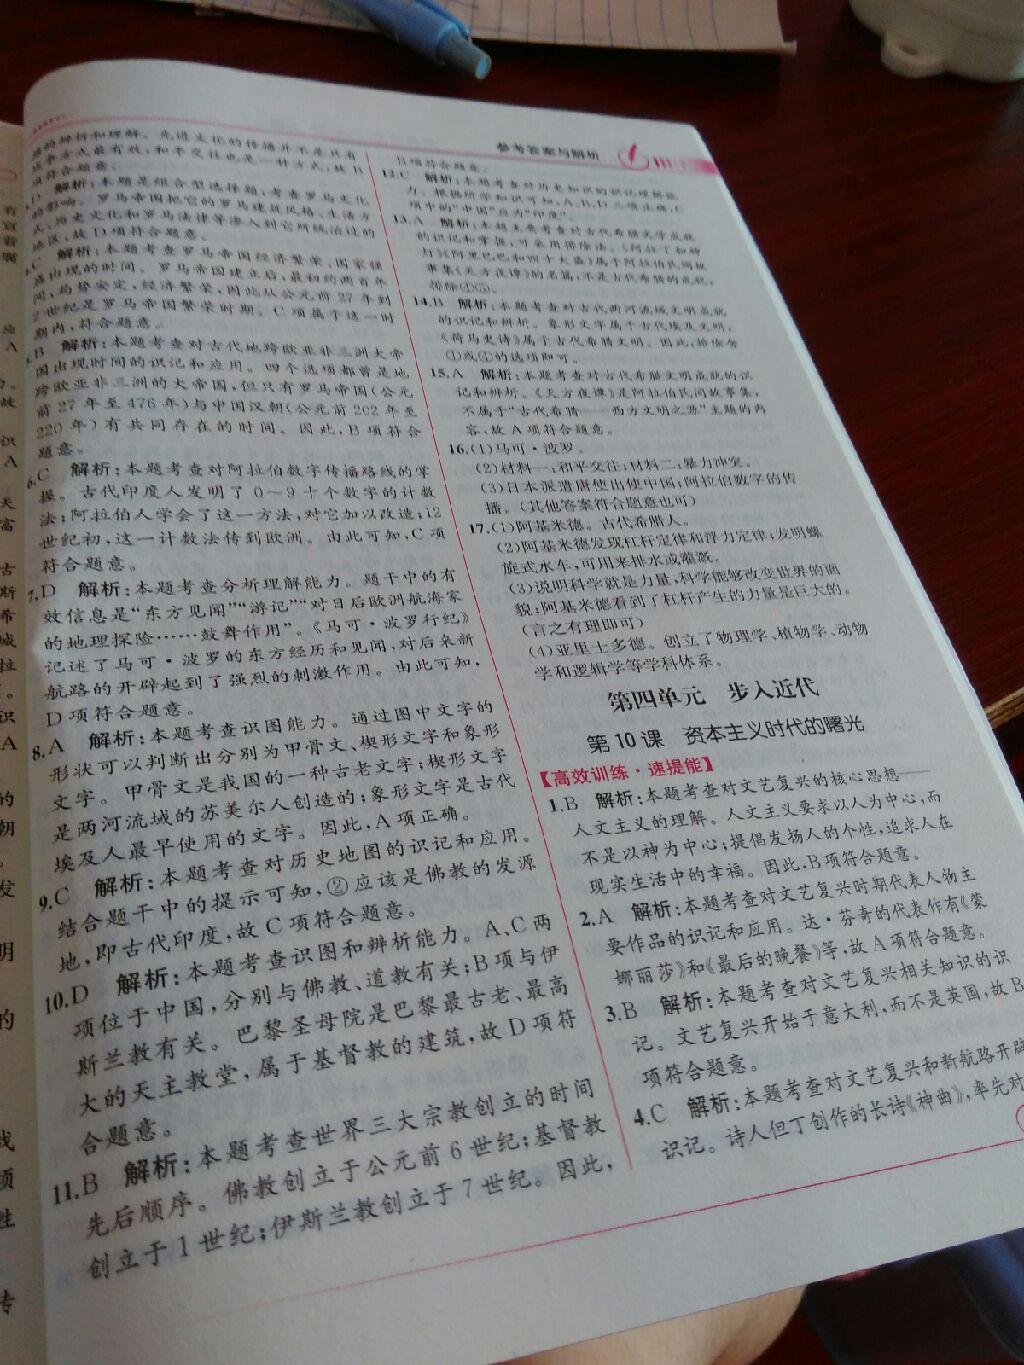 参考答案与解析
的辨析和理解。先进文化的传播并不是只有
战争方式最有效,和平交往也是一种方式,故B
项符合题意。
D 解析:本题是组合型选择题,考查罗马文化
的影响。罗马帝国把它的罗马建筑风格、生活方
式、历史文化和罗马法律等渗入到它所统治过的
地区,故D项符合题意。
C 解析:本题考查罗马帝国经济繁荣,国家强
盛出现的时间。罗马帝国建立后,最初约两百年
间,局势安定,经济繁荣,因此从公元前27年到
2世纪是罗马帝国繁荣时期。C项属于这一时
期内,符合题意。
B 解析:本题考查对古代地跨欧亚非三洲大帝
国出现时间的识记和应用。四个选项都曾是地
跨欧亚非三洲的大帝国,但只有罗马帝国(公元
前27年至476年)与中国汉朝(公元前202年至
220年)有共同存在的时间。因此,B项符合
题意。
6.C 解析:本题考查对阿拉伯数字传播路线的掌
握。古代印度人发明了0~9十个数字的计数
法;阿拉伯人学会了这一方法,对它加以改造;12
世纪初,这一计数法传到欧洲。由此可知,C项
符合题意。
7.D 解析:本题考查分析理解能力。题干中的有
效信息是“东方见闻”“游记”“对日后欧洲航海家
的地理探险……鼓舞作用”。《马可·波罗行纪》
记述了马可·波罗的东方经历和见闻,对后来新
航路的开辟起到了强烈的刺激作用。由此可知,
D项符合题意。
8.A 解析:本题考查识图能力。通过图中文字的
形状可以判断出分别为甲骨文、楔形文字和象形
文字。甲骨文是我国的一种古老文字;楔形文字
是两河流域的苏美尔人创造的;象形文字是古代
埃及人最早使用的文字。因此,A项正确。
9.C 解析:本题考查对历史地图的识记和应用。
结合题干中的提示可知,②应该是佛教的发源
地,即古代印度,故C项符合题意。
10.D 解析:本题考查识图和辨析能力。A、C两
项位于中国,分别与佛教、道教有关;B项与伊
斯兰教有关。巴黎圣母院是巴黎最古老、最高
大的天主教堂,属于基督教的建筑,故D项符
合题意。
11.B 解析:本题考查世界三大宗教创立的时间
先后顺序。佛教创立于公元前6世纪;基督教
创立于1世纪;伊斯兰教创立于7世纪。因此,
B项符合题意。
12.C 解析:本题考查对历史知识的识记理解能
力。根据所学知识可知,A、B、D三项正确,C
项中的“中国”应为“印度”。
13.A 解析:本题主要考查对古代希腊文学成就
的识记和掌握,可采用排除法。《阿拉丁和神
灯》《阿里巴巴和四十大盗》属于阿拉伯民间故
事集《天方夜谭》的名篇,不是古代希腊的成就,
14.B 解析:本题考查对古代两河流域文明成就
的识记和辨析。象形文字属于古代埃及文明,
《荷马史诗》属于古代希腊文明。因此,排除含
的选项即可。
15.A 解析:本题考查对古代希腊文明成就的识
记和辨析。《天方夜谭》是阿拉伯民间故事集,
不属于“古代希腊——西方文明之源”主题的内
容,故A项符合题意。
16.(1)马可·波罗。
(2)材料一:和平交往;材料二:暴力冲突。
(3)日本派遣唐使出使中国;阿拉伯数字的传
播。(其他答案符合题意也可)
17.(1)阿基米德。古代希腊人。
(2)阿基米德发现杠杆定律和浮力定律;发明螺
旋式水车,可用来排水或灌溉。
(3)说明科学就是力量,科学能够改变世界的面
貌;阿基米德看到了杠杆产生的力量是巨大的。
(言之有理即可)
(4)亚里士多德。创立了物理学、植物学、动物
学和逻辑学等学科体系。
第四单元 步入近代
第10课 资本主义时代的曙光
【高效训练·速提能】
1.B 解析:本题考查对文艺复兴的核心思想——
人文主义的理解。人文主义要求以人为中心,而
不是以神为中心;提倡发扬人的个性,追求人在
现实生活中的幸福。因此,B项符合题意。
2.A 解析:本题考查对文艺复兴时期代表人物主
要作品的识记和应用。达·芬奇的代表作有《蒙
娜丽莎》和《最后的晚餐》等,故A项符合题意。
3.B 解析:本题考查对文艺复兴相关知识的识
记。文艺复兴开始于意大利,而不是英国,故B
项符合题意。
4.C 解析:本题考查对文艺复兴和新航路开辟
识记。诗人但丁创作的长诗《神曲》,率先对